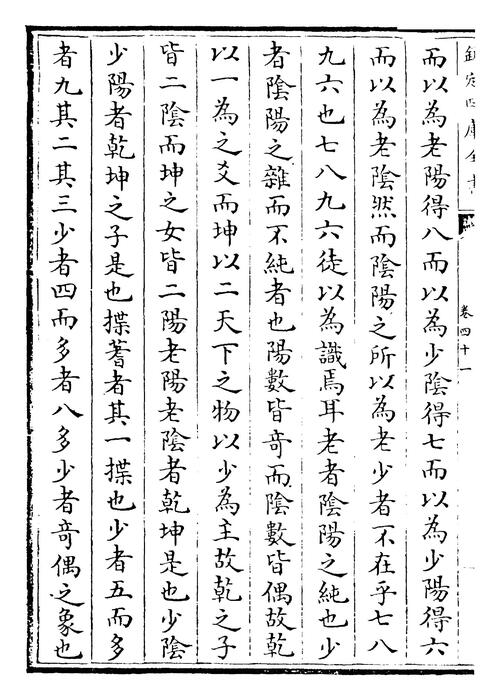 欽定四庫全書
卷四十一
而以為老陽得八而以為少陰得七而以為少陽得六
而以為老陰然而陰陽之所以為老少者不在乎七八
九六也七八九六徒以為識焉耳老者陰陽之純也少
者陰陽之雜而不純者也陽數皆竒而陰數皆偶故乾
以一為之爻而坤以二天下之物以少為主故乾之子
皆二陰而坤之女皆二陽老陽老陰者乾坤是也少陰
少陽者乾坤之子是也揲蓍者其一揲也少者五而多
者九其二其三少者四而多者八多少者竒偶之象也